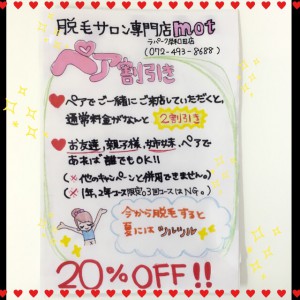 脱毛サロン専門店mot
ラパーク岸和田店
(072-493-8688)
ペア割引き
ペアでご一緒にご来店していただくと、
通常料金がなんと 2割引き
お友達,親子様,姉妹、ペアで
あれば誰でもOK!!
(※他のキャンペーンと併用できません。)
(※1年,2年コース限定の3回コースはNG。)
今から脱毛すると
夏にはツルツル
20%OFF!!